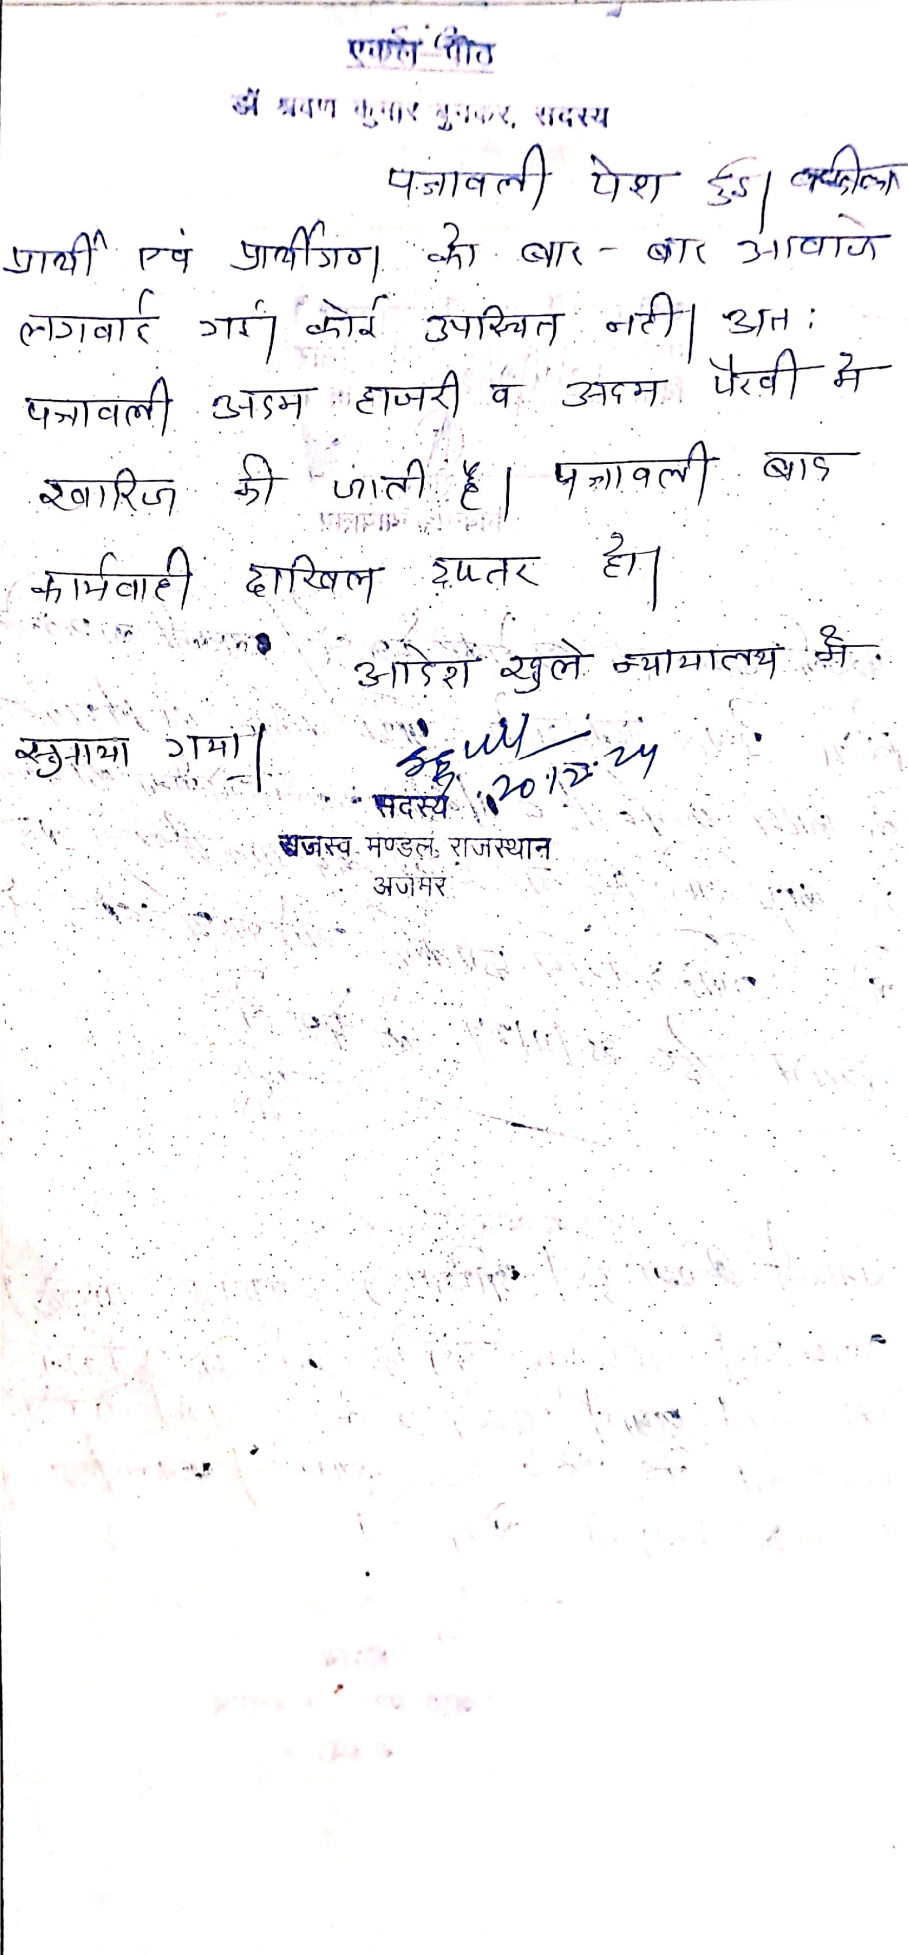 एकल पीठ
डॉ श्रवण कुमार बुनकर, सदस्य
पत्रावली पेश हुई। वकील
प्रार्थी एवं प्रार्थीगण को बार - बार आवाजे
लगवाई गई। कोई उपस्थित नही। अत :
पत्रावली अदम हाजरी व अदम पैरवी मे
खारिज की जाती है। पत्रावली बाद
कार्यवाही दाखिल दफ्तर हो।
आदेश खुले न्यायालय में
सुनाया गया।
20.12.24
सदस्य
राजस्व मण्डल, राजस्थान
अजमेर